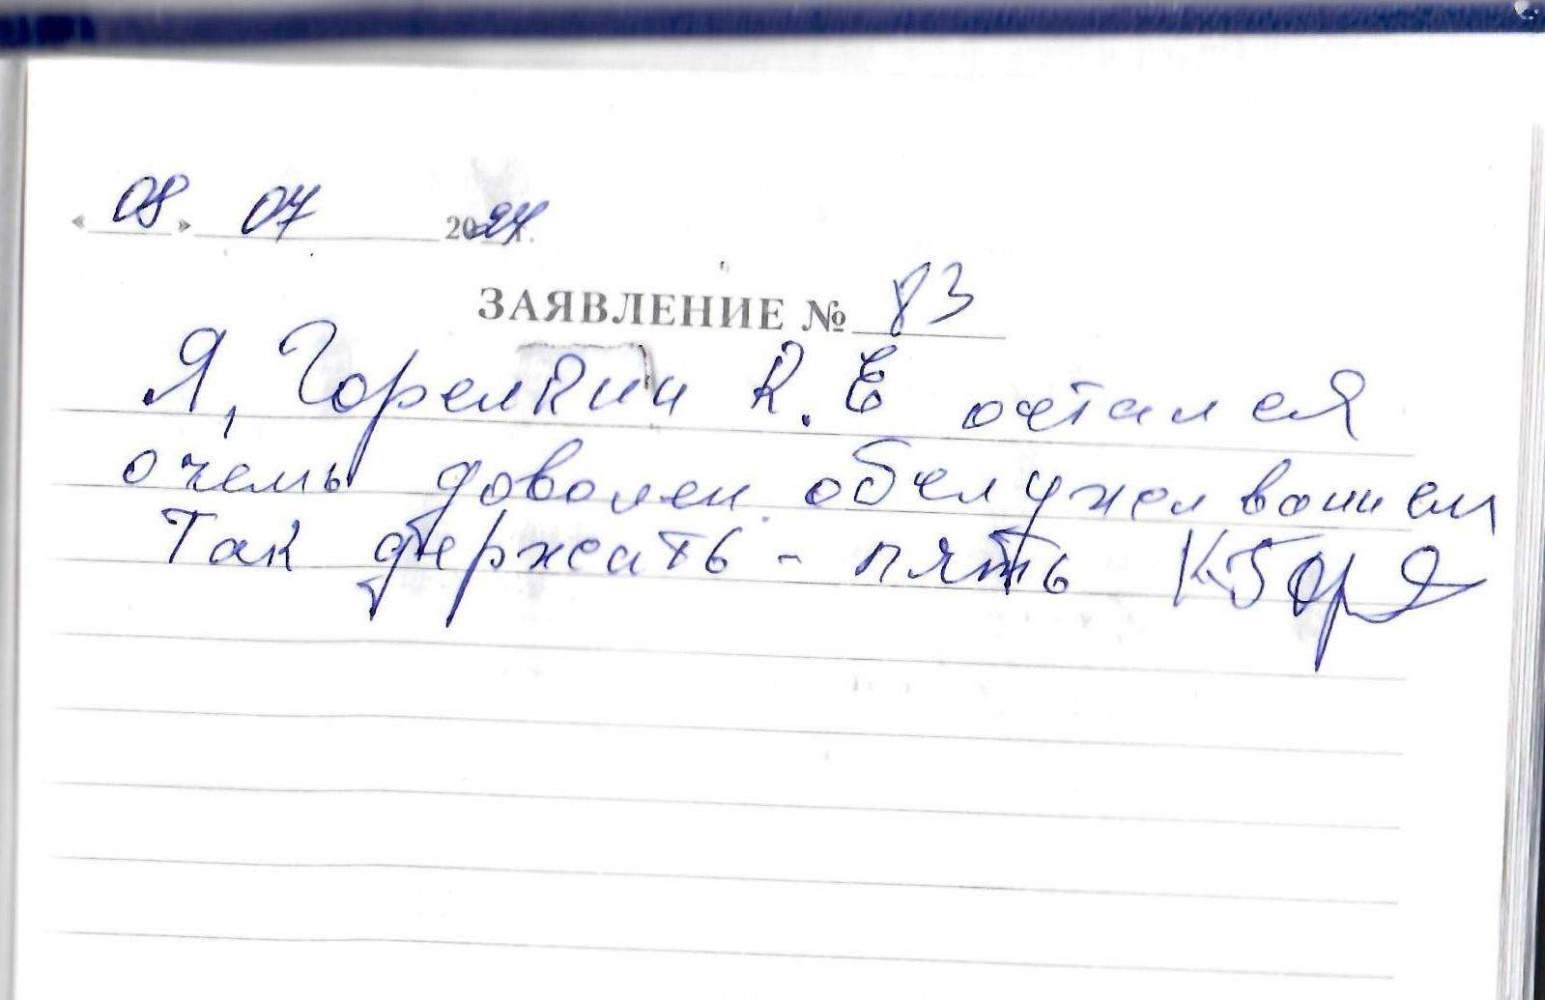 «08» 07 2024 г.
ЗАЯВЛЕНИЕ № 83
Я, Горелкин К. Е остался
очень доволен обслуживанием
Так держать - пять